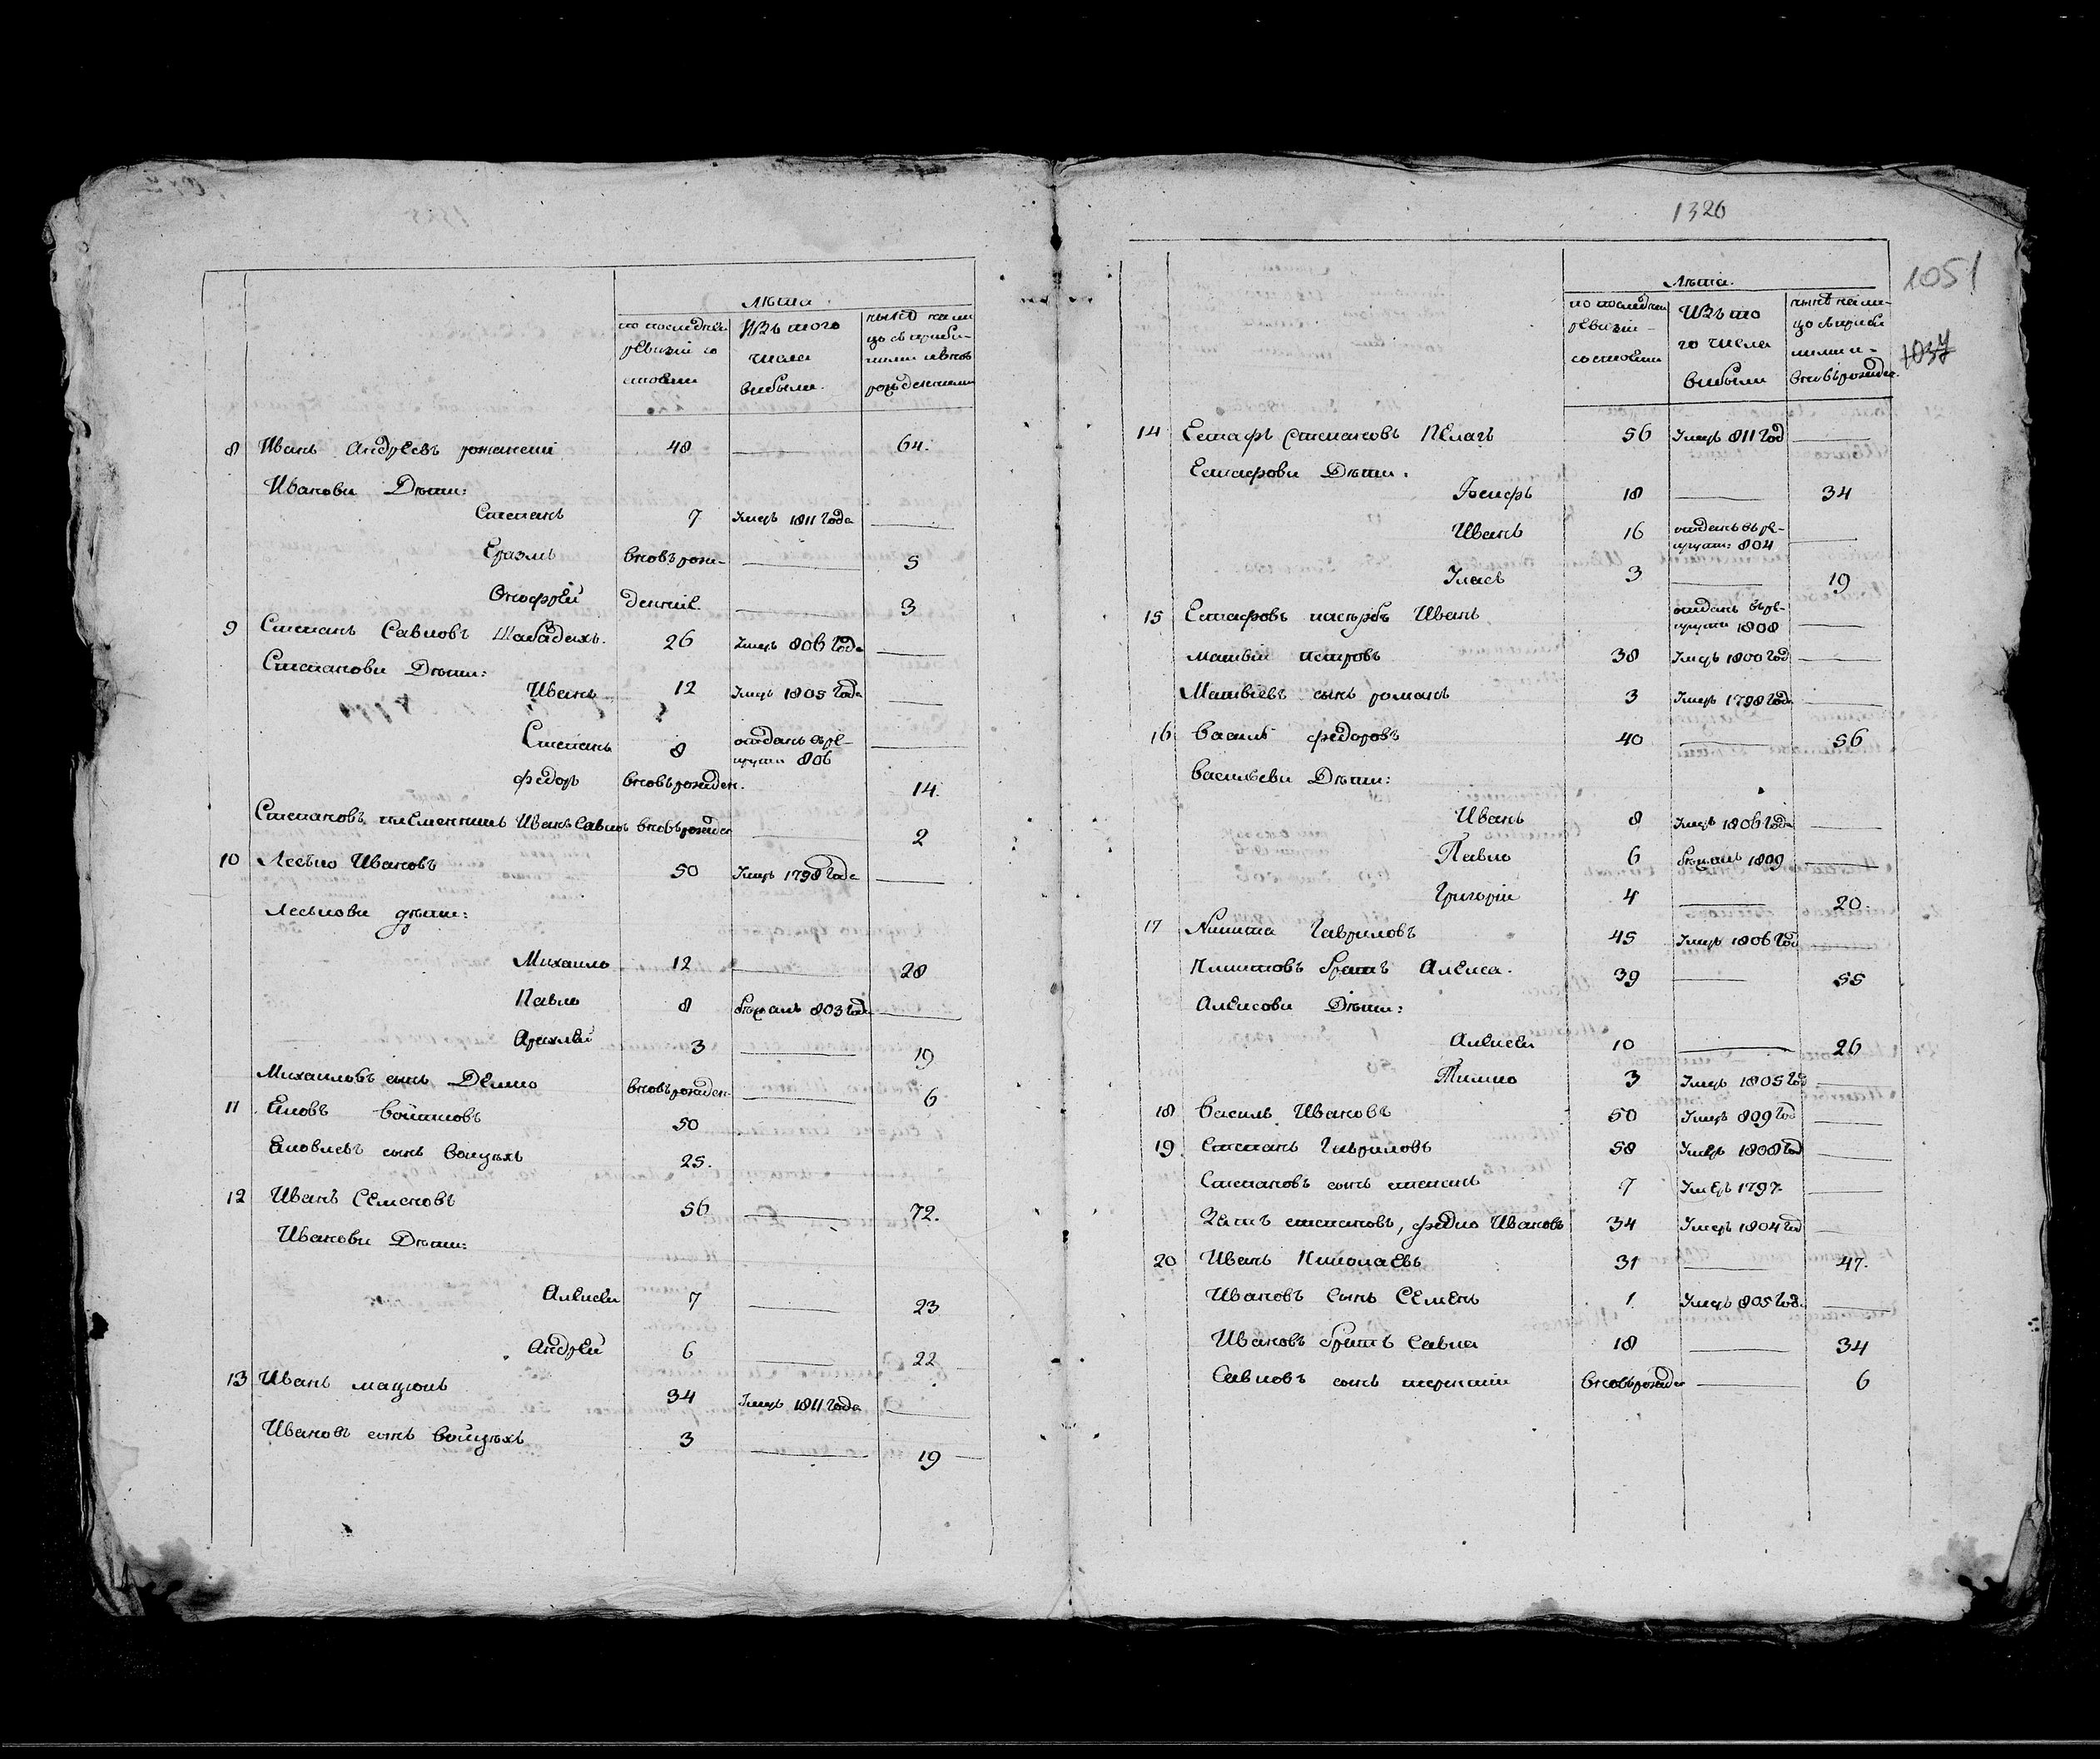 Лѣта.
по последней ревизіи состояли
Изъ того числа выбыли.
ныне на лицо съ прибылыми и вновь рожденными
8 Иванъ Андреевъ 48 — 64.
Иванови Дѣти:
Степанъ 7 Умеръ 1811 Года —
Еразмъ вновь рож- — 5
Онофрей денніе. — 3
9 Степанъ Савковъ 26 Умеръ 806 Года —
Степанови Дѣти:
Иванъ 12 Умеръ 1805 Года —
Степанъ 8 отданъ въ ре-крути 806 —
Федоръ вновь рожден. 14.
Степановъ племенникъ Иванъ Савковъ вновь рожден — 2
10 Леско Ивановъ 50 Умеръ 1798 Года —
Леськови дѣти:
Михайло 12 — 28
Павло 8 бѣжалъ 803 Год —
3 — 19
Михайловъ сынъ Демко вновь рожден. — 6
11 Яковъ 50
Яковлевъ сынъ Войцѣхъ 25.
12 Иванъ Семеновъ 56 — 72.
Иванови Дѣти:
Алексѣи 7 — 23
Андрей 6 — 22
13 Иванъ мацюкъ 34 Умеръ 1811 Года —
Ивановъ сынъ Войцѣхъ 3 — 19
1320
1051
1037
Лѣта.
по последней ревизіи состояли
Изъ того числа выбыли
ныне на лицо съ прибылими и вновь рожден.
14 Естафъ Степановъ 56 Умеръ 811 Год —
Естафови Дѣти.
Іосифъ 18 — 34
Иванъ 16 отданъ въ ре-крути: 804 —
3 — 19
15 Естафовъ пасербъ Иванъ отданъ въ ре-крути 1808 —
матвіи петровъ 38 Умеръ 1800 Год —
Матвіевъ сынъ романъ 3 Умеръ 1798 Года —
16 Василь федоровъ 40 — 56
Васильеви Дѣти:
Иванъ 8 Умеръ 1806 Года —
Павло 6 бѣжалъ 1809 —
Григоріи 4 — 20.
17 Никита Гавриловъ 45 Умеръ 1806 Год —
Никитовъ братъ Алекса. 39 — 55
Алексови Дѣти:
Алексѣи 10 — 26
Тимко 3 Умеръ 1805 Год —
18 Василь Ивановъ 50 Умеръ 809 Год —
19 Степанъ Гавриловъ 58 Умеръ 1808 Год —
Степановъ сынъ степанъ 7 Умеръ 1797. —
Зять степановъ, федко Ивановъ 34 Умеръ 1804 Год —
20 Иванъ Николаевъ 31 — 47.
Ивановъ Сынъ Семенъ 1. Умеръ 805 Год. —
Ивановъ братъ Савка 18 — 34
Савковъ сынъ терентіи вновь рожден — 6